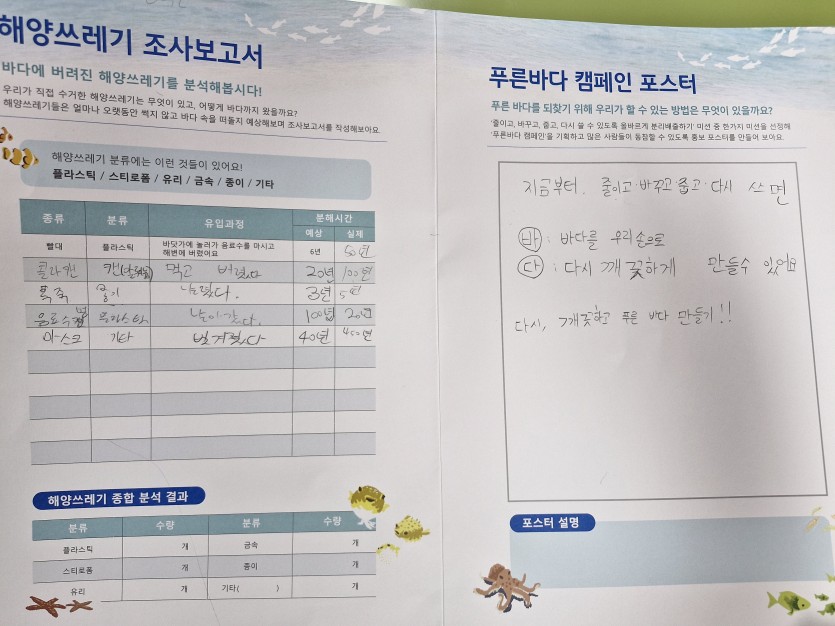 해양쓰레기 조사보고서
바다에 버려진 해양쓰레기를 분석해봅시다!
우리가 직접 수거한 해양쓰레기는 무엇이 있고, 어떻게 바다까지 왔을까요?
해양쓰레기들은 얼마나 오랫동안 썩지 않고 바다 속을 떠돌지 예상해보며 조사보고서를 작성해보아요.
해양쓰레기 분류에는 이런 것들이 있어요!
플라스틱 / 스티로폼 / 유리 / 금속 / 종이 / 기타
종류 분류 유입과정 분해시간
예상 실제
빨대 플라스틱 바닷가에 놀러가 음료수를 마시고 해변에 버렸어요 6년 50년
콜라캔 먹고 버렸다 20년 100년
폭죽 3년 5년
날아갔다. 100년 20년
마스크 기타 벗겨졌다 40년 450년
해양쓰레기 종합 분석 결과
분류 수량 분류 수량
플라스틱 개 금속 개
스티로폼 개 종이 개
유리 개 기타( ) 개
푸른바다 캠페인 포스터
푸른 바다를 되찾기 위해 우리가 할 수 있는 방법은 무엇이 있을까요?
'줄이고, 바꾸고, 줍고, 다시 쓸 수 있도록 올바르게 분리배출하기' 미션 중 한가지 미션을 선정해
'푸른바다 캠페인'을 기획하고 많은 사람들이 동참할 수 있도록 홍보 포스터를 만들어 보아요.
지금부터. 줄이고·바꾸고·줍고·다시 쓰면
바 : 바다를 우리손으로
다 : 다시 깨끗하게 만들수 있어요
다시, 깨끗하고 푸른 바다 만들기!!
포스터 설명